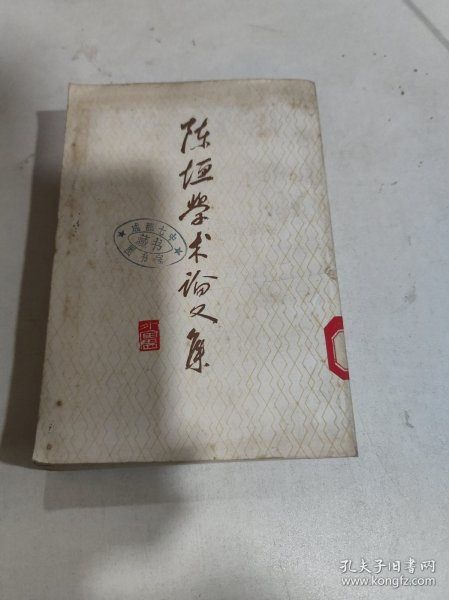 陈垣学术论文集
藏书
孔夫子旧书网
www.kongfz.com